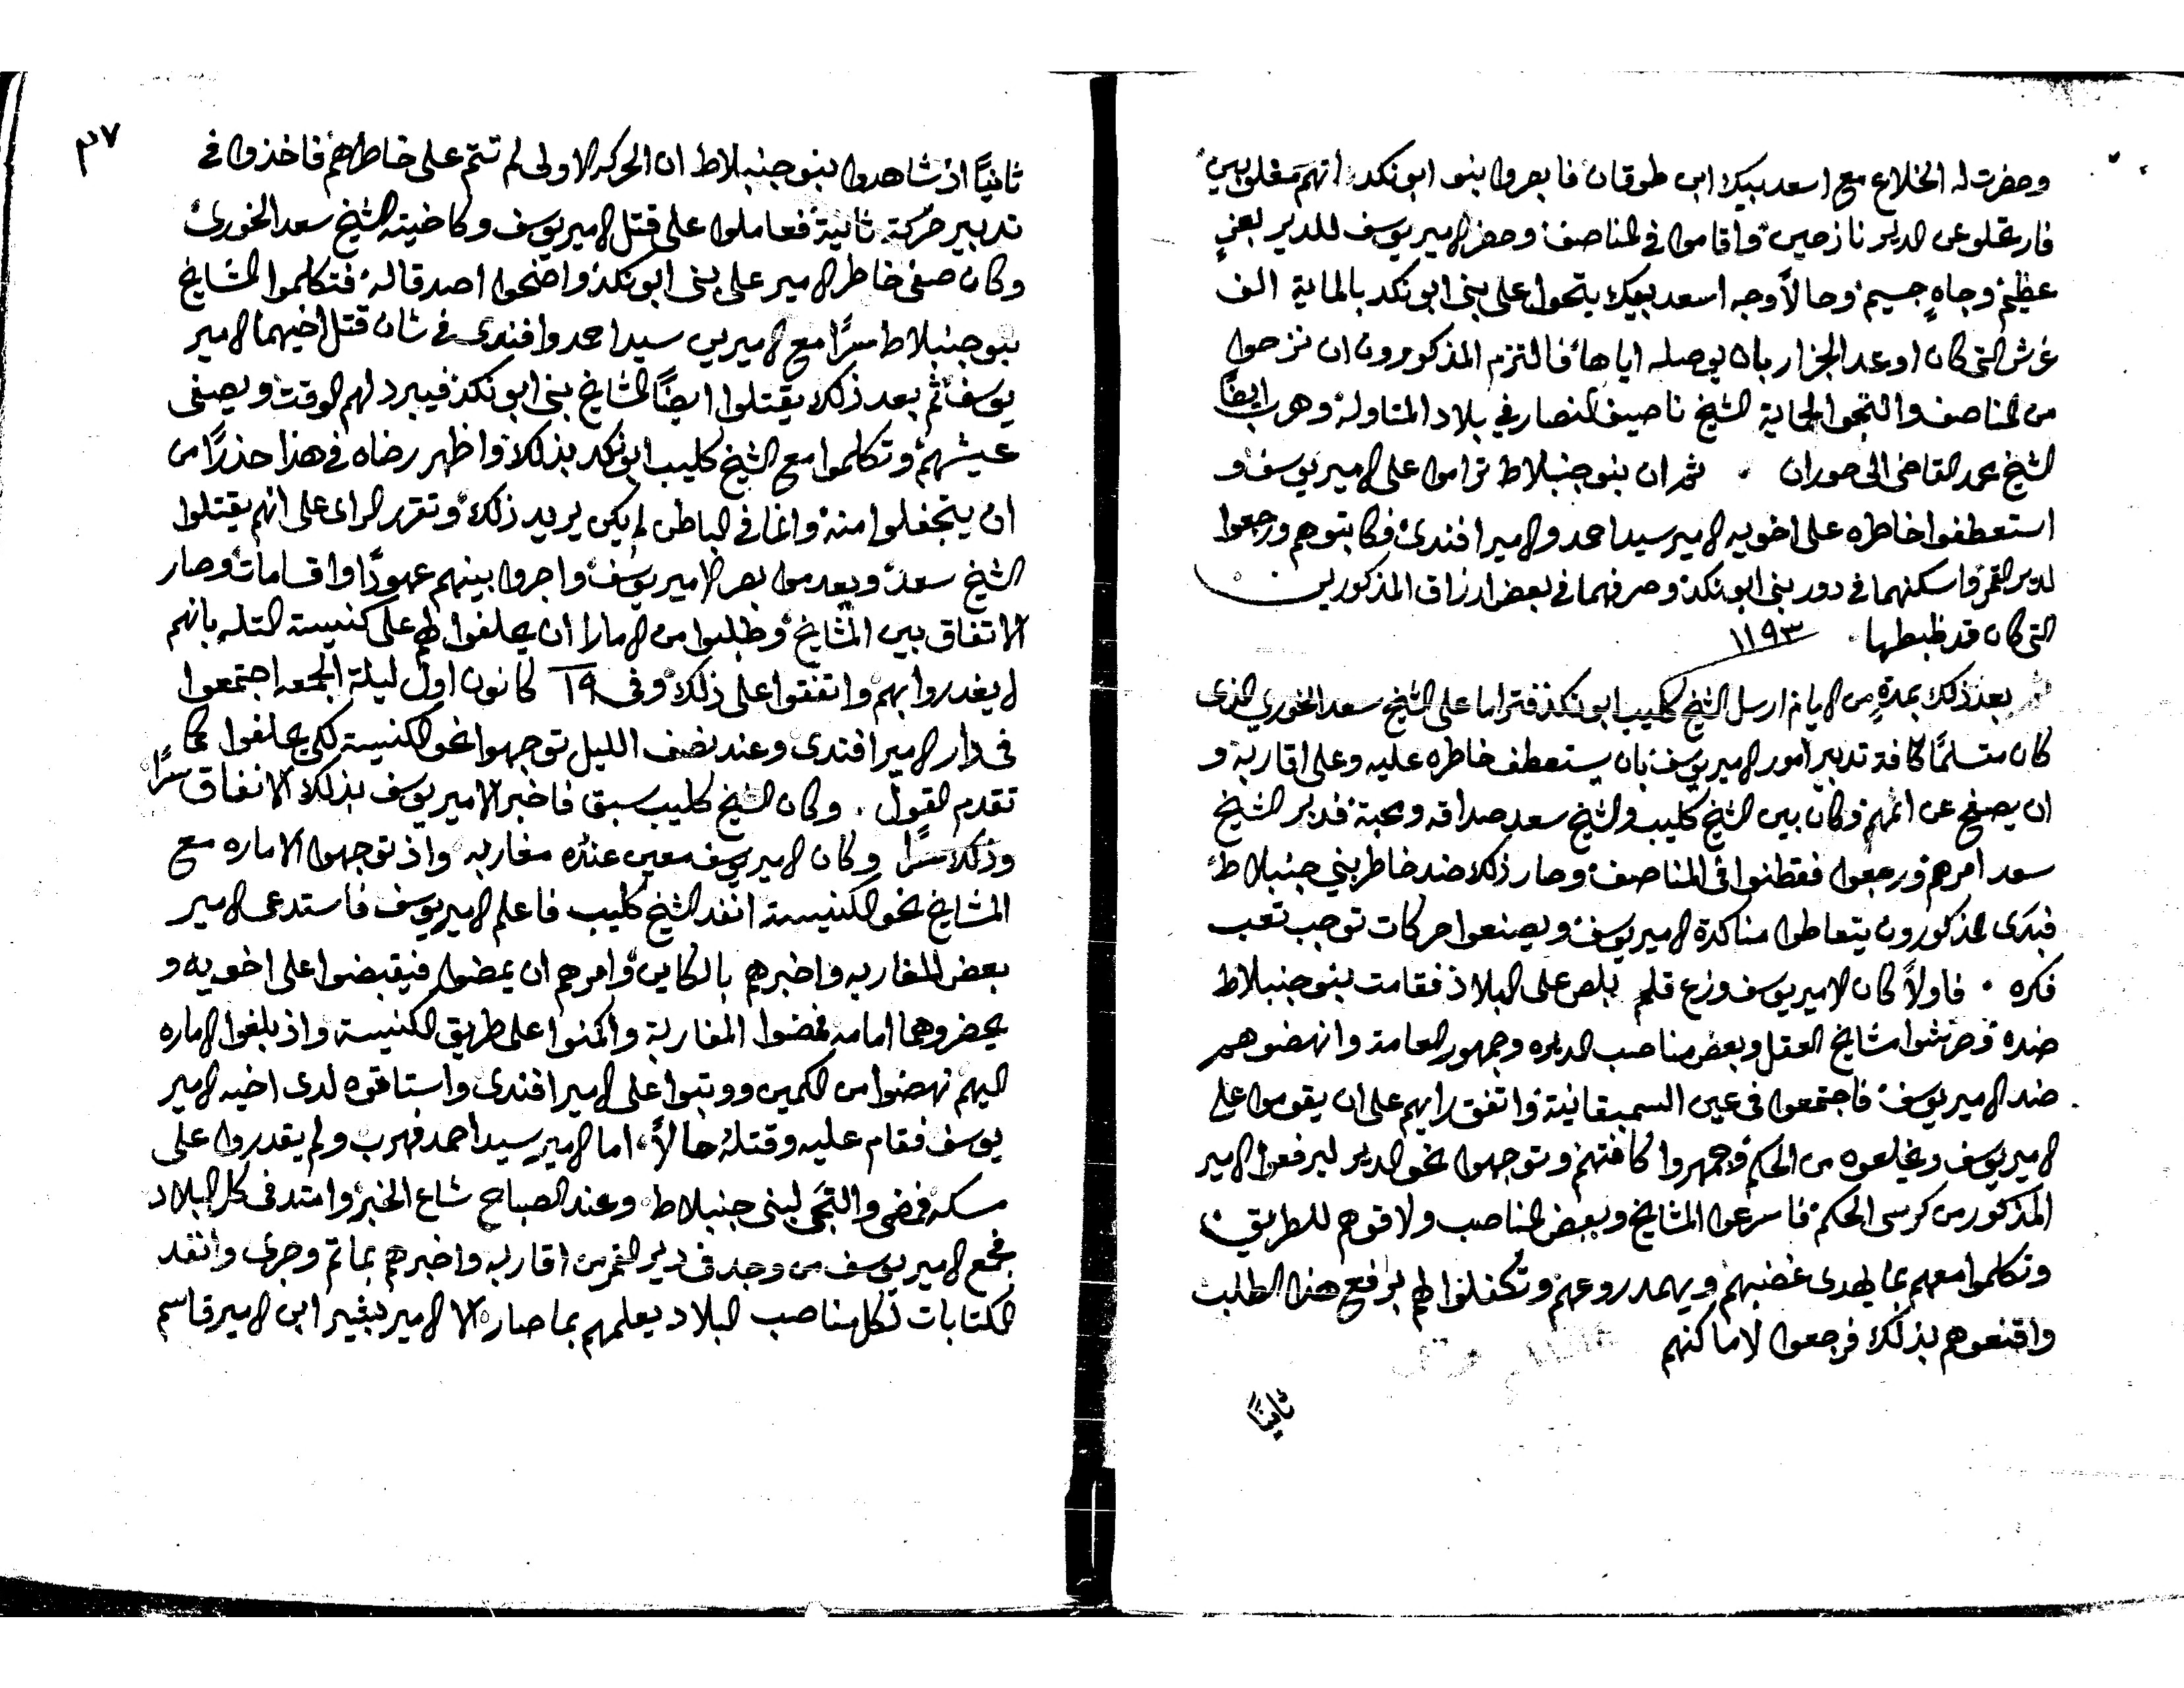 وحضرت له الخلاع مع اسعد بيك ابن طوقان فابصروا بنو ابو نكد انهم مغلوبين
فارتحلو عن الدير نازحين واقاموا في المناصف وحضر الامير يوسف للدير بعزٍ
عظيم وجاهٍ جسيم وحالاً وجه اسعد بيك يتحول على بني ابو نكد بالماية الف
غرش التي كان اوعد الجزار بان يوصله اياها فالتزم المذكورون ان نزحوا
من المناصف والتجوا لحماية الشيخ ناصيف النصار في بلاد المتاوله وهرب ايضاً
الشيخ محمد القاضي الى حوران . ثم ان بنو جنبلاط تراموا على الامير يوسف و
استعطفوا خاطره على اخويه الامير سيد احمد والامير افندي فكاتبوهم ورجعوا
لدير القمر واسكنهما في دور بني ابو نكد وصرفهما في بعض ارزاق المذكورين
التي كان قد ظبطها . ١١٩٣
ثم بعد ذلك بمدةٍ من الايام ارسل الشيخ كليب ابو نكد فتراما على الشيخ سعد الخوري الذي
كان متسلماً كافة تدبير امور الامير يوسف بان يستعطف خاطره عليه وعلى اقاربه و
ان يصفح عن اثمهم وكان بين الشيخ كليب والشيخ سعد صداقه ومحبة فدبر الشيخ
سعد امرهم ورجعوا فقطنوا في المناصف وصار ذلك ضد خاطر بني جنبلاط
فبدى المذكورون يتعاطوا مناكدة الامير يوسف ويصنعوا حركات توجب تعب
فكره . فاولاً كان الامير يوسف وزع قلم بلص على البلاد فقامت بنو جنبلاط
ضده وحرثوا مشايخ العقل وبعض مناصب الديره وجمهور العامة وانهضوهم
ضد الامير يوسف فاجتمعوا في عين السمبقانية واتفق رايهم على ان يقوموا على
الامير يوسف ويخلعوه من الحكم وجمهروا كافتهم وتوجهوا نحو الدير ليرفعوا الامير
المذكور من كرسى الحكم فاسرعوا المشايخ وبعض المناصب ولاقوهم للطريق
وتكلموا معهم بما يهدى غضبهم ويهمد روعهم وتكفلوا لهم برفع هذا الطلب
واقنعوهم بذلك فرجعوا لاماكنهم
ثانياً
٣٧
ثانياً اذ شاهدوا بنو جنبلاط ان الحركه الاولى لم تتم على خاطرهم فاخذوا في
تدبير حركة ثانية فعاملوا على قتل الامير يوسف وكاخيته الشيخ سعد الخوري
وكان صفى خاطر الامير على بني ابو نكد واضحوا اصدقا له فتكلموا المشايخ
بنو جنبلاط سراً مع الاميرين سيد احمد وافندي في شان قتل اخيهما الامير
يوسف ثم بعد ذلك يقتلوا ايضاً المشايخ بني ابو نكد فيبرد لهم الوقت ويصفى
عيشهم وتكلموا مع الشيخ كليب ابو نكد بذلك واظهر رضاه في هذا حذراً من
ان يتجفلوا منه وانما في الباطن لم يكن يريد ذلك وتقرر الراى على انهم يقتلوا
الشيخ سعد ويعدموا بصر الامير يوسف واجروا بينهم عهودًا واقسامات وصار
الاتفاق بين المشايخ وطلبوا من الامارا ان يحلفوا لهم على كنيسة التله بانهم
لا يغدروا بهم واتفقوا على ذلك وفي ١٩ كانون اول ليلة الجمعه اجتمعوا
في دار الامير افندى وعند نصف الليل توجهوا نحو الكنيسة لكي يحلفوا كما
تقدم القول . وكان الشيخ كليب سبق فاخبر الامير يوسف بذلك الاتفاق سرًا
وذلك سرًا وكان الامير يوسف معين عنده مغاربه واذ توجهوا الاماره مع
المشايخ نحو الكنيسة انفد الشيخ كليب فاعلم الامير يوسف فاستدعى الامير
بعض المغاربه واخبرهم بالكاين وامرهم ان يمضوا فيقبضوا على اخويه و
يحضروهما امامه فمضوا المغاربة واكمنوا على طريق الكنيسة واذ بلغوا الاماره
اليهم نهضوا من الكمين ووتبوا على الامير افندى واستاقوه لدى اخيه الامير
يوسف فقام عليه وقتلهُ حالاً . اما الامير سيد احمد فهرب ولم يقدروا على
مسكه فمضى والتجى لبني جنبلاط . وعند الصباح شاع الخبر وامتد في كل البلاد
فجمع الامير يوسف من وجد في دير القمر من اقاربه واخبرهم بما تم وجرى وانفد
الكتابات لكل مناصب البلاد يعلمهم بما صار الا الامير بشير ابن الامير قاسم